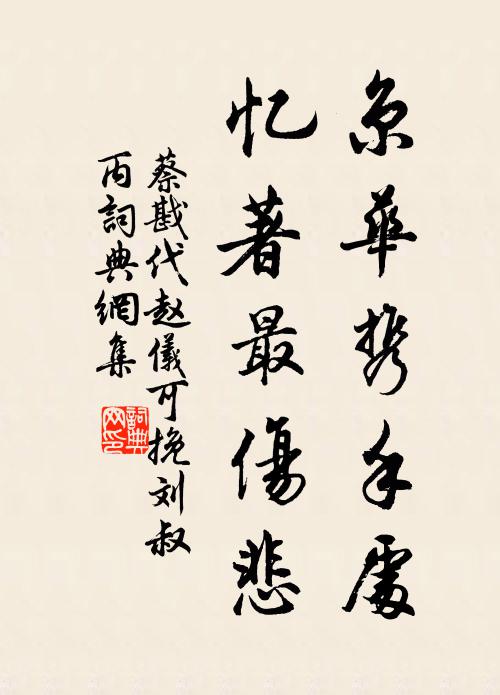 京華携手處
忆著最傷悲
蔡戡代赵儀可挽刘叔
丙詞典網集
詞典网印